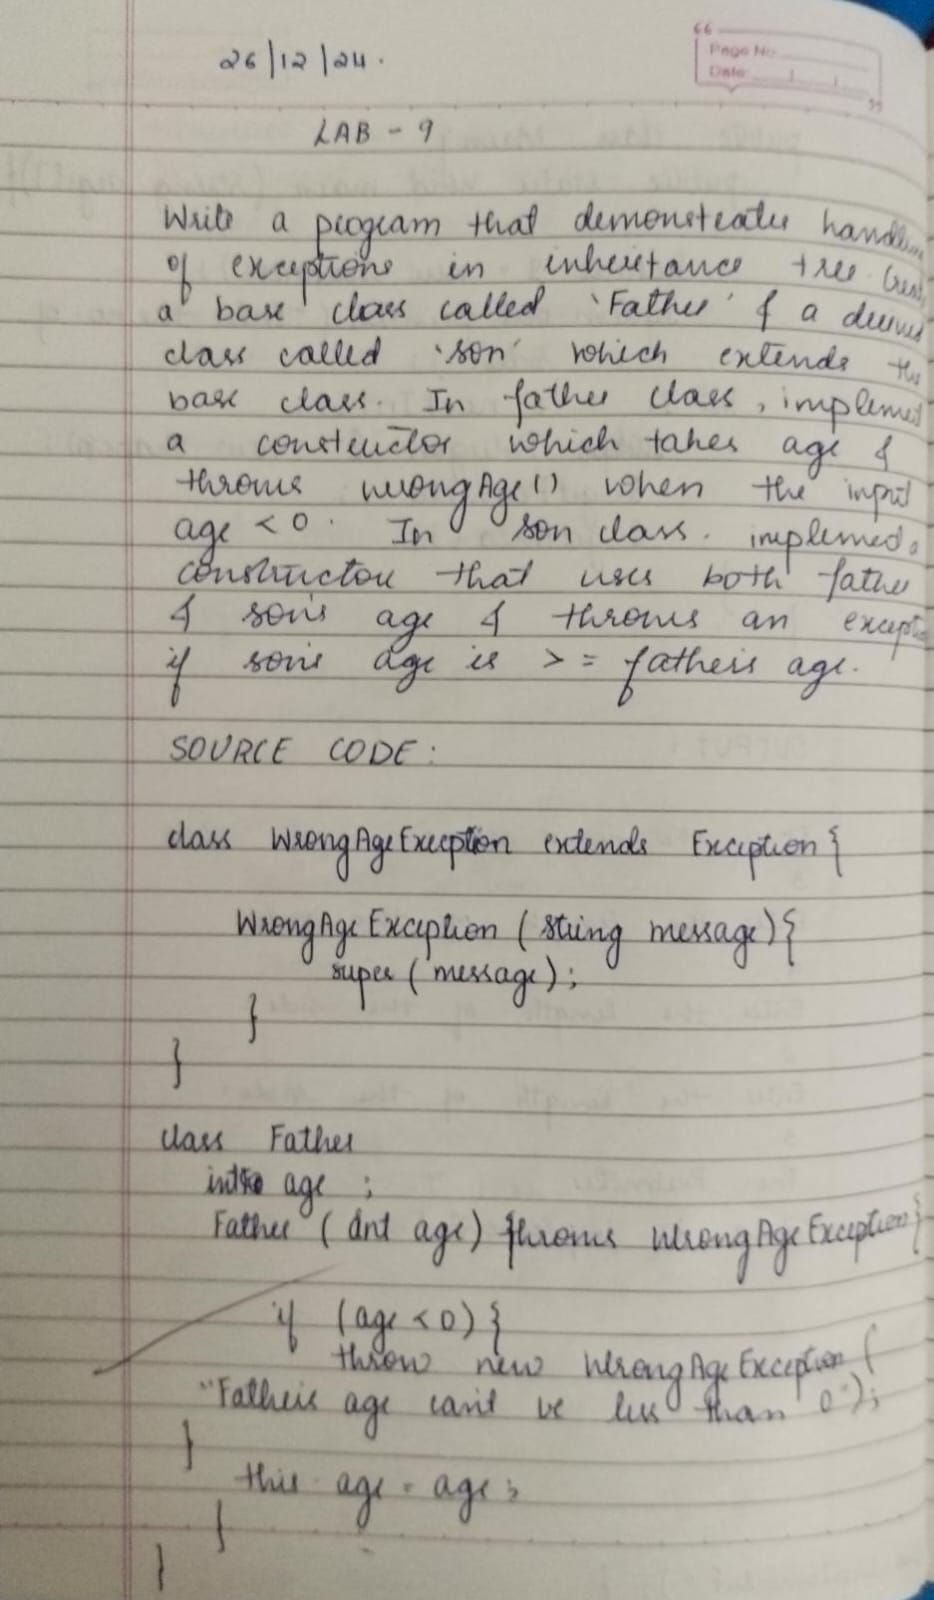 26/12/24.
Page No
Date:
LAB - 9
Write a program that demonstrates
of exceptions in inheritance tree.
a base class called 'Father' & a
class called 'son' which extends the
base class. In father class, implement
a constructor which takes age &
throws wrongAge() when the input
age < 0. In son class. implement a
constructor that uses both father
& son's age & throws an
if son's age is >= father's age.
SOURCE CODE:
class WrongAgeException extends Exception {
WrongAgeException (String message) {
super (message);
}
}
class Father
int age ;
Father (int age) throws WrongAgeException {
if (age < 0) {
throw new WrongAgeException (
"Father's age can't be less than 0");
}
this.age = age;
}
}